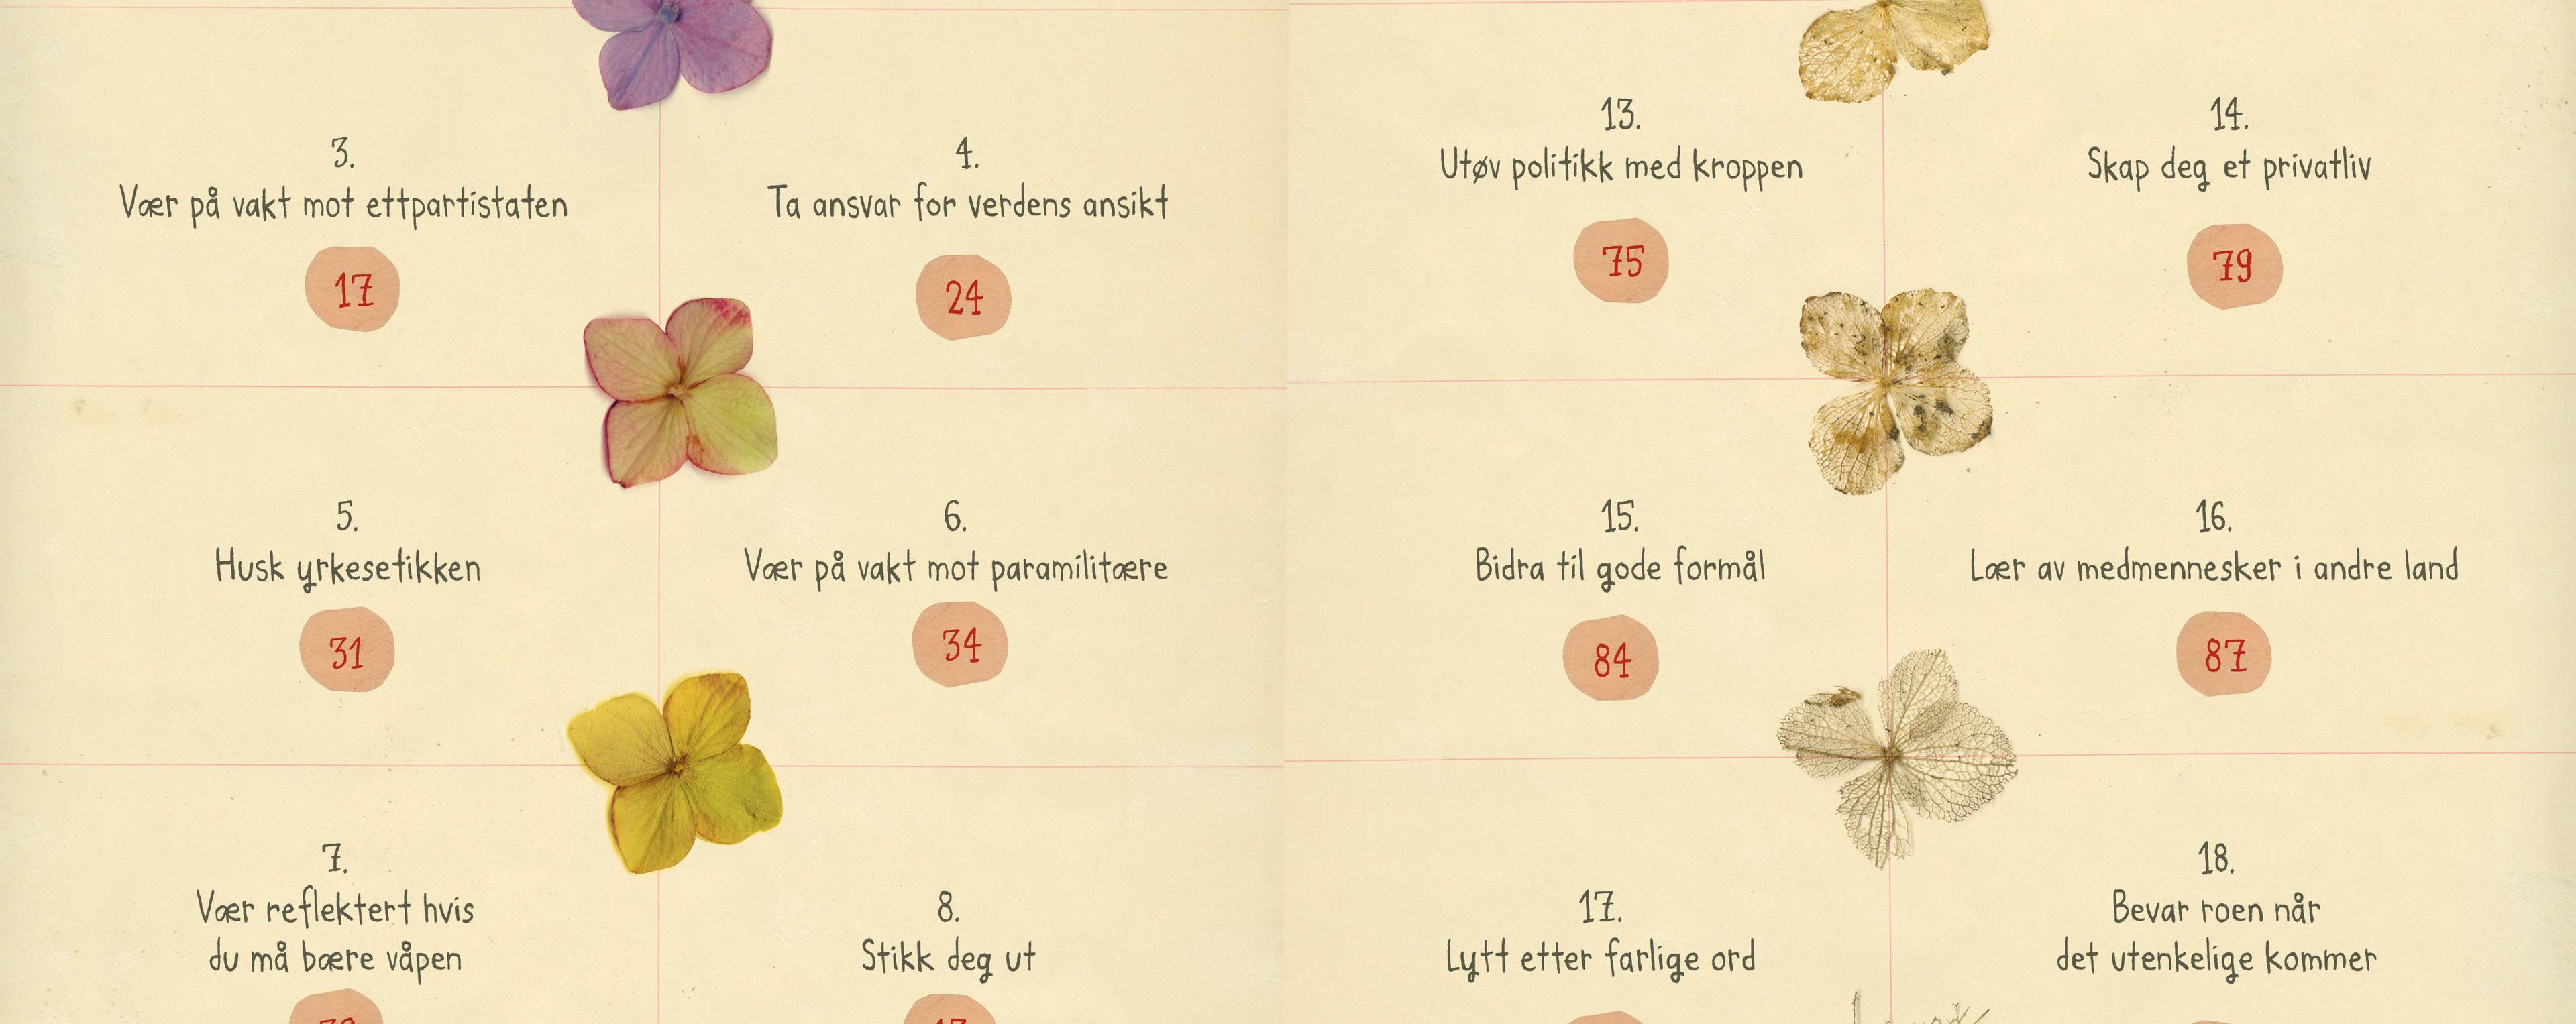 3.
Vær på vakt mot ettpartistaten
17
4.
Ta ansvar for verdens ansikt
24
5.
Husk yrkesetikken
31
6.
Vær på vakt mot paramilitære
34
7.
Vær reflektert hvis
du må bære våpen
8.
Stikk deg ut
13.
Utøv politikk med kroppen
75
14.
Skap deg et privatliv
79
15.
Bidra til gode formål
84
16.
Lær av medmennesker i andre land
87
17.
Lytt etter farlige ord
18.
Bevar roen når
det utenkelige kommer